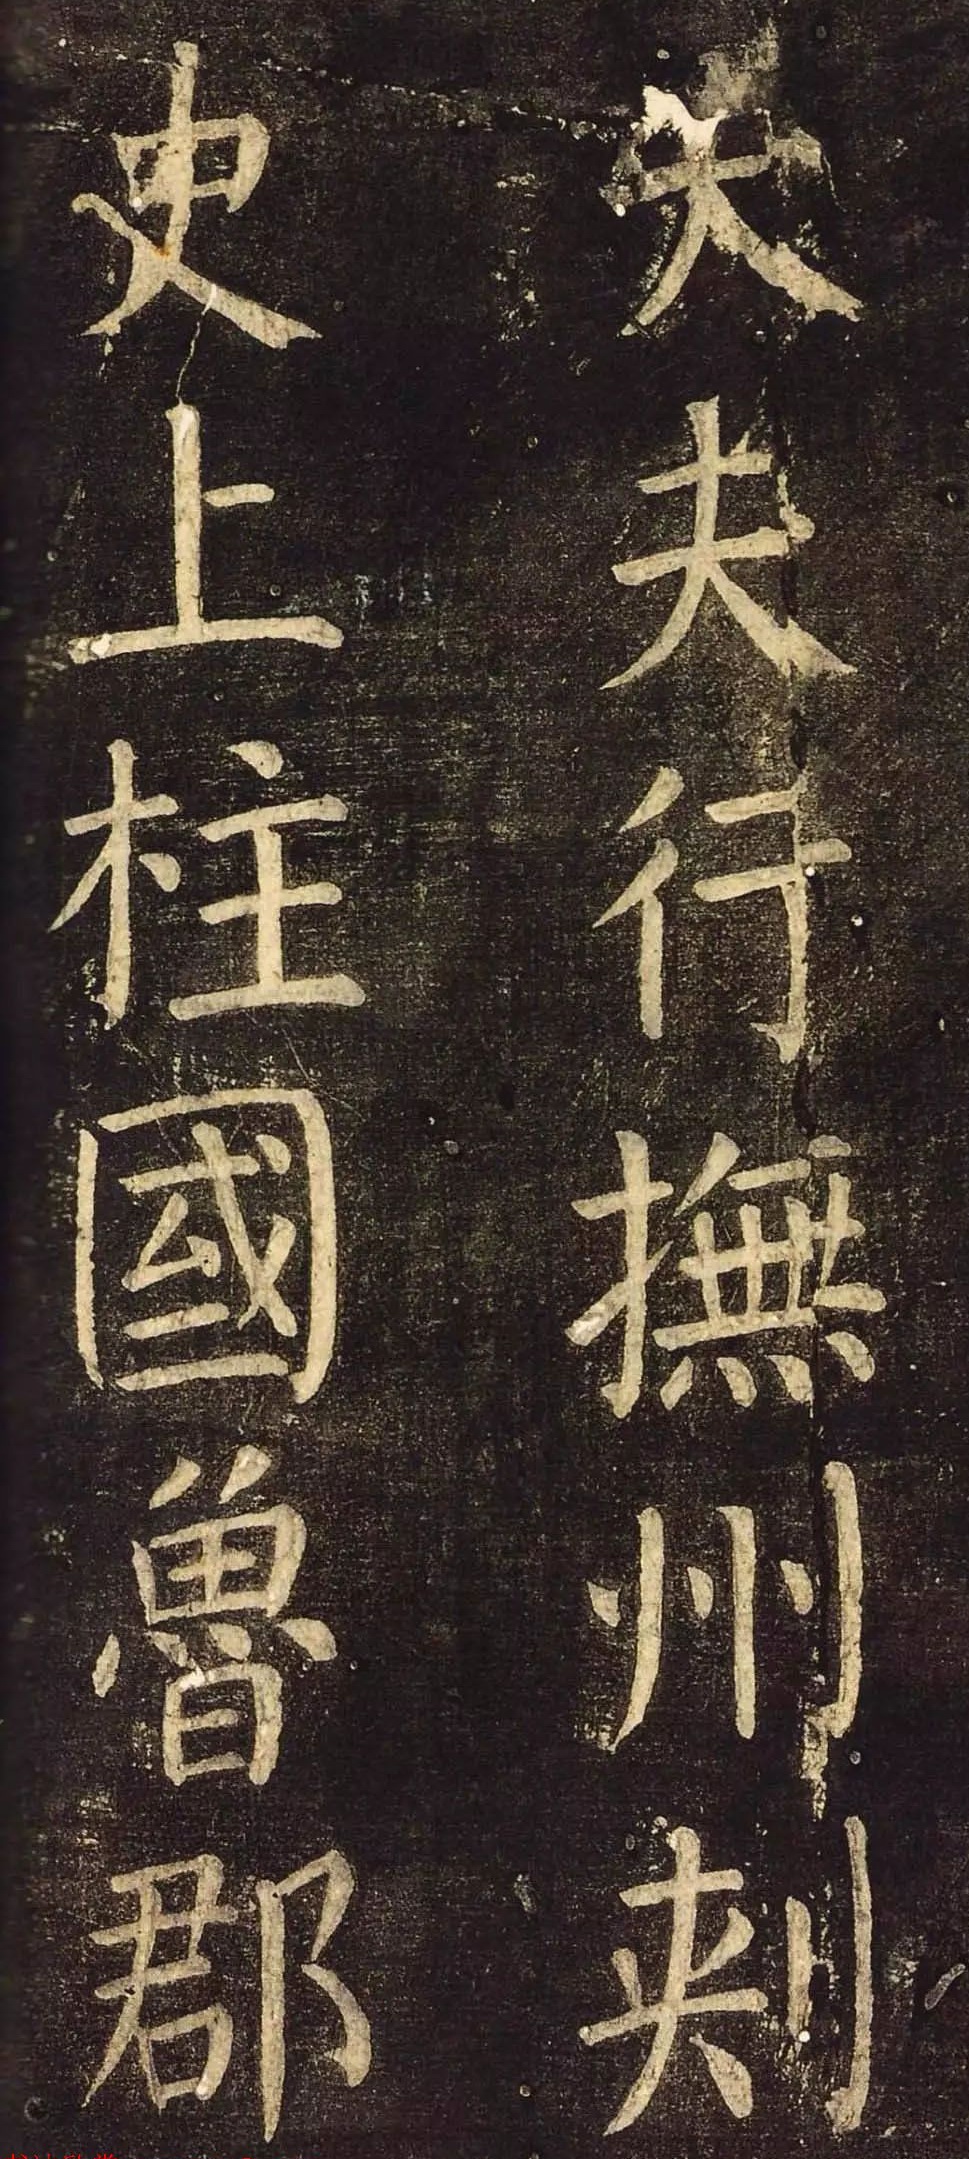 大夫行撫州刺
史上柱國魯郡